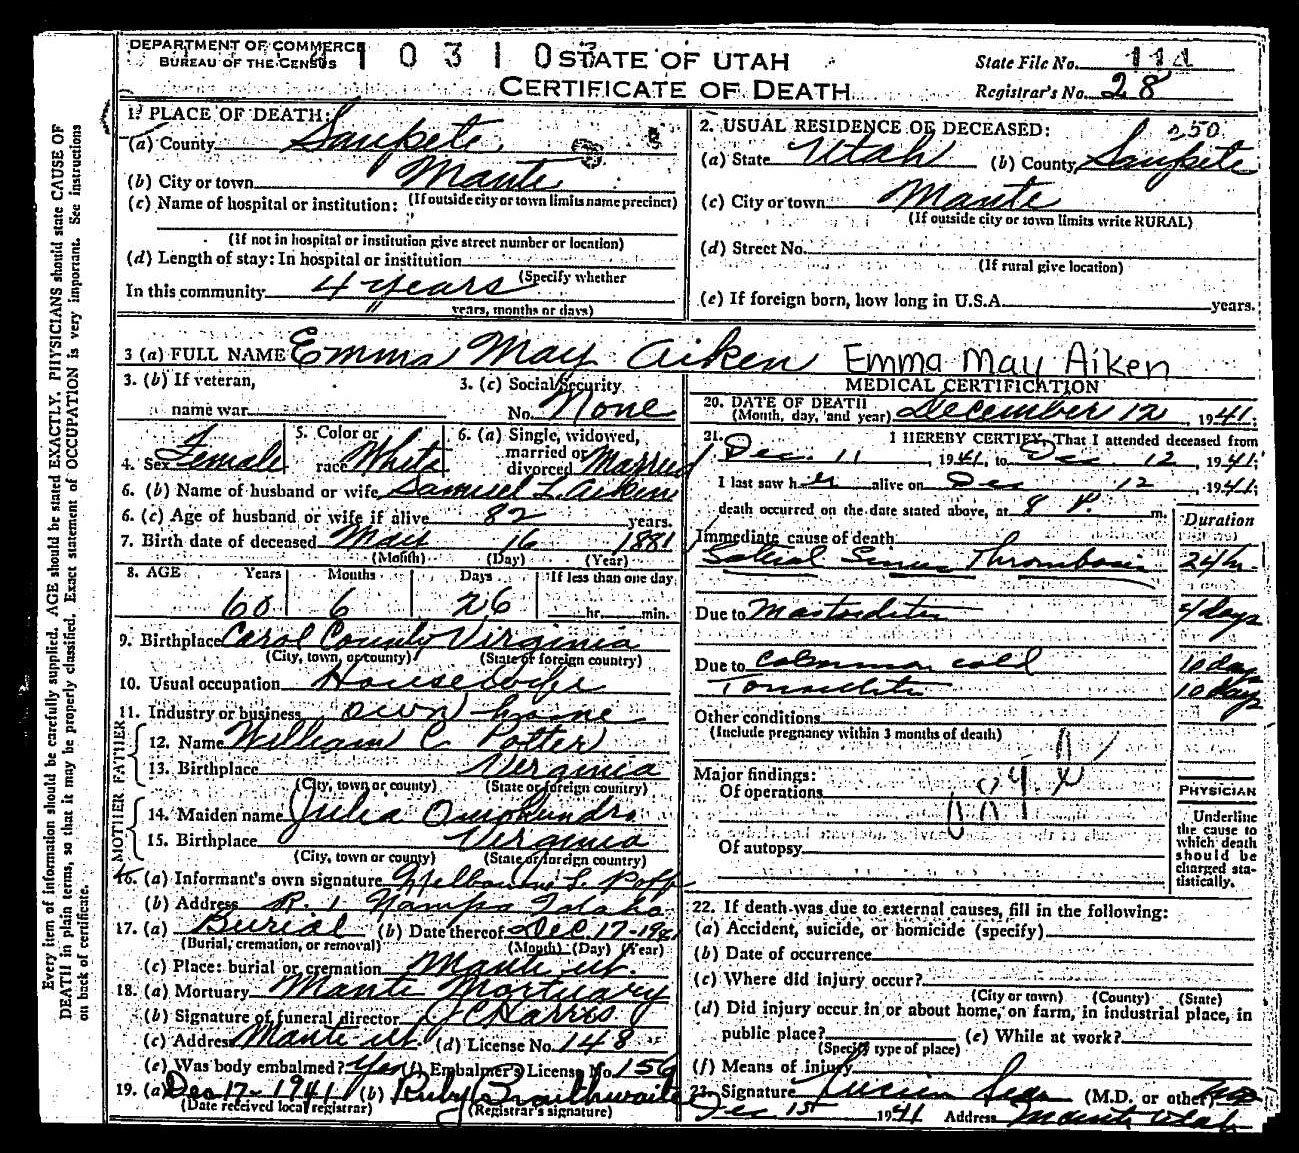 DEPARTMENT OF COMMERCE
BUREAU OF THE CENSUS
1 0 3 1 0
STATE OF UTAH
CERTIFICATE OF DEATH
State File No. 111
Registrar's No. 28
1. PLACE OF DEATH:
(a) County Sanpete
(b) City or town Manti
(If outside city or town limits name precinct)
(c) Name of hospital or institution:
(If not in hospital or institution give street number or location)
(d) Length of stay: In hospital or institution
(Specify whether
In this community 4 years
years, months or days)
2. USUAL RESIDENCE OF DECEASED:
250
(a) State Utah (b) County Sanpete
(c) City or town Manti
(If outside city or town limits write RURAL)
(d) Street No.
(If rural give location)
(e) If foreign born, how long in U.S.A. years.
3 (a) FULL NAME Emma May Aiken Emma May Aiken
3. (b) If veteran,
name war
3. (c) Social Security
No. None
4. Sex Female
5. Color or
race White
6. (a) Single, widowed,
married or
divorced Married
6. (b) Name of husband or wife Samuel L. Aiken
6. (c) Age of husband or wife if alive 82 years.
7. Birth date of deceased May 16 1881
(Month) (Day) (Year)
8. AGE Years Months Days If less than one day
60 6 26 hr. min.
9. Birthplace Carol County Virginia
(City, town, or county) (State or foreign country)
10. Usual occupation Housewife
11. Industry or business own home
FATHER
12. Name William C Potter
13. Birthplace Virginia
(City, town or county) (State or foreign country)
MOTHER
14. Maiden name Julia Omohundro
15. Birthplace Virginia
(City, town or county) (State or foreign country)
16. (a) Informant's own signature
(b) Address R. 1 Nampa Idaho
17. (a) Burial (b) Date thereof Dec 17-1941
(Burial, cremation, or removal) (Month) (Day) (Year)
(c) Place: burial or cremation Manti ut.
18. (a) Mortuary Manti Mortuary
(b) Signature of funeral director J C Harris
(c) Address Manti ut (d) License No. 148
(e) Was body embalmed? Yes (f) Embalmer's License No. 156
19. (a) Dec 17-1941 (b) Ruby Braithwaite
(Date received local registrar) (Registrar's signature)
MEDICAL CERTIFICATION
20. DATE OF DEATH
(Month, day, and year) December 12, 1941;
21. I HEREBY CERTIFY, That I attended deceased from
Dec. 11, 1941, to Dec. 12, 1941;
I last saw her alive on Dec 12, 1941;
death occurred on the date stated above, at 8 P. m.
Duration
Immediate cause of death
Lateral Sinus Thrombosis 24 hr.
Due to Mastoiditis 4 days
Due to Common cold 10 days
Tonsilitis 10 days
Other conditions
(Include pregnancy within 3 months of death)
Major findings:
Of operations
Of autopsy
PHYSICIAN
Underline
the cause to
which death
should be
charged sta-
tistically.
22. If death was due to external causes, fill in the following:
(a) Accident, suicide, or homicide (specify)
(b) Date of occurrence
(c) Where did injury occur?
(City or town) (County) (State)
(d) Did injury occur in or about home, on farm, in industrial place, in
public place? (e) While at work?
(Specify type of place)
(f) Means of injury
23. Signature Lucien Sears (M.D. or other)
1941 Address Manti Utah
Every item of information should be carefully supplied. AGE should be stated EXACTLY. PHYSICIANS should state CAUSE OF
DEATH in plain terms, so that it may be properly classified. Exact statement of OCCUPATION is very important. See instructions
on back of certificate.